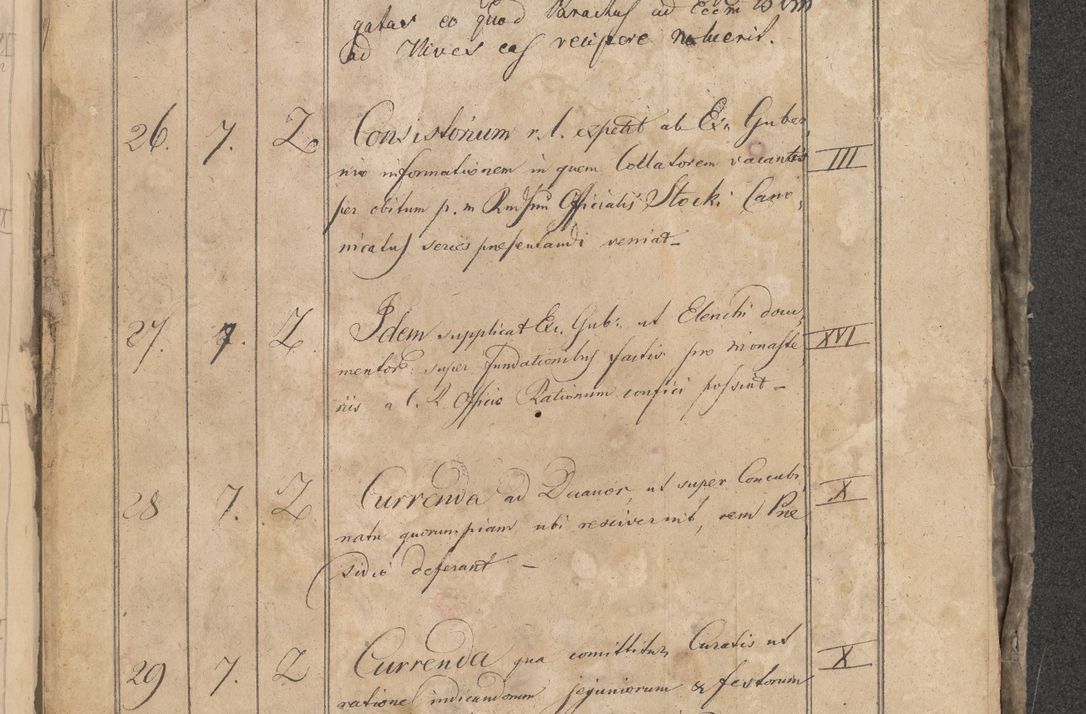 gatas eo quod Parachus ad Eccm
ad Nives eas recipere noluerit.
26. 7. Z. Consistorium r. l. expetit ab Ex. Guber,
nio informationem in quem Collatorem vacantis III
per obitum p. m. Officialis Stocki Cano,
nicatus series presentandi veniat
27. 7. Z. Idem supplicat Ex. Gub. ut Elenchi docu, XVI
mentor. super fundationibus factis pro monaste,
riis a C. R. Officio Rationum confici possint
28 7. Z Currenda ad Decanos, ut super Concubi, X
natu quorumpiam ubi resciverint, rem Præ
sidio deferant
29 7. Z Currenda qua comittitur Curatis ut X
ratione indicandorum jejuniorum & festorum